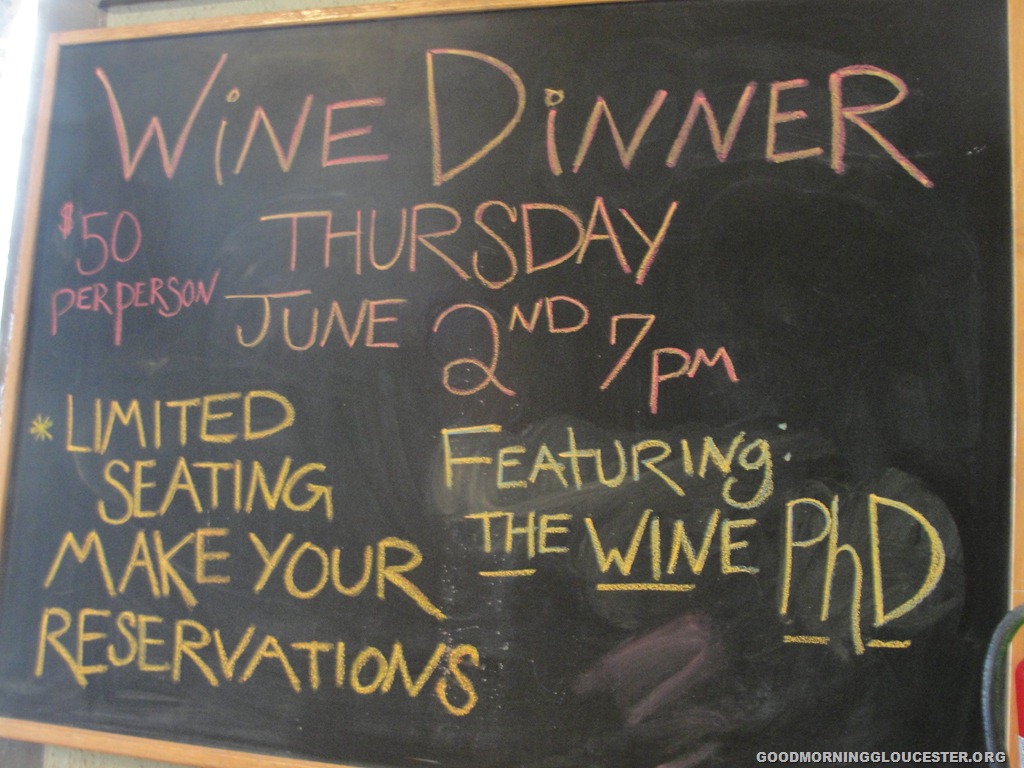 WiNE DiNNER
$50
PER PERSON
THURSDAY
JUNE 2ND 7pm
* LIMITED
SEATING
MAKE YOUR
RESERVATIONS
FEATURING:
THE WINE PhD
GOODMORNINGGLOUCESTER.ORG